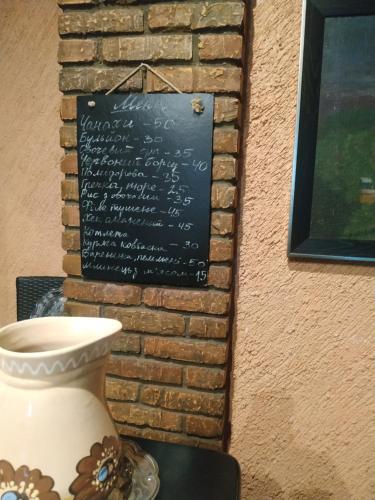 Меню
Чанахи - 50
Бульйон - 30
Овочевий суп - 35
Червоний борщ - 40
Помидорова - 35
Гречка, пюре - 25
Рис з овочами - 35
Філе тушене - 45
Хек смажений - 45
Котлета
куряча ковбаска - 30
Вареники, пельмені - 50
млинець з м'ясом - 15